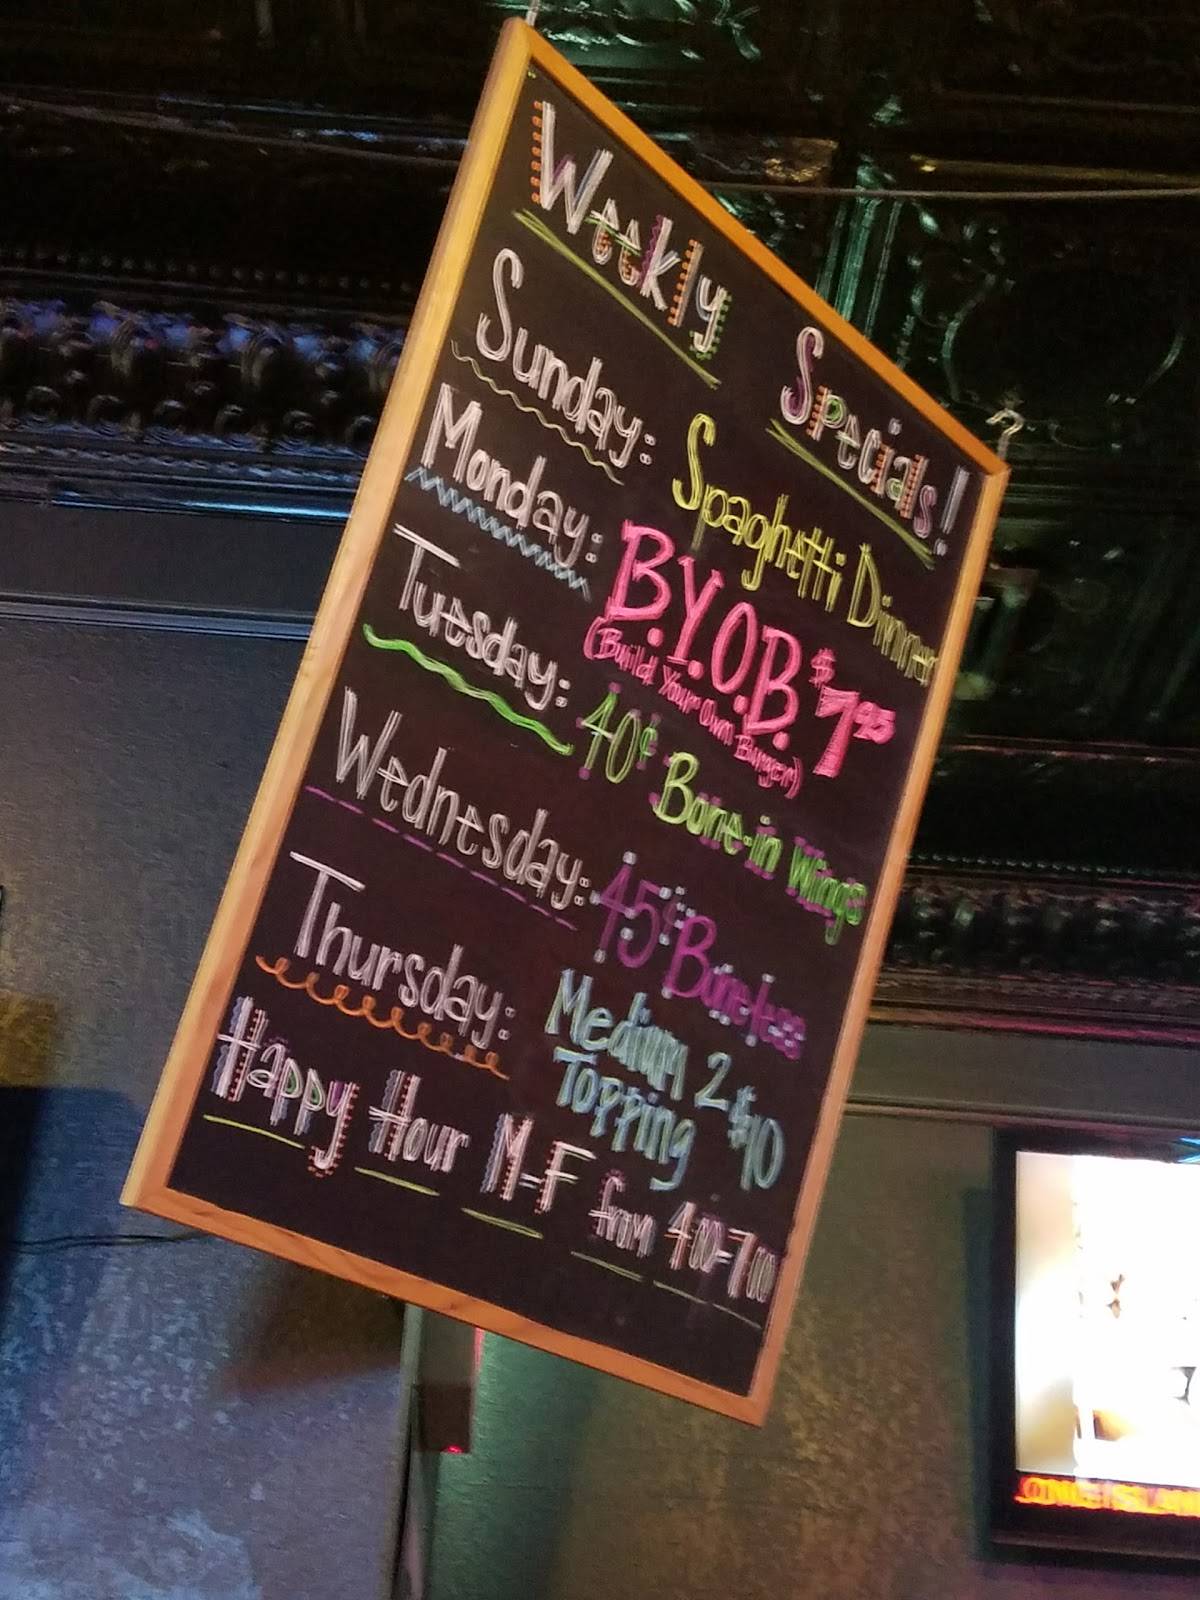 Weekly Specials!
Sunday: Spaghetti Dinner
Monday: B.Y.O.B. $7.95
(Build Your Own Burger)
Tuesday: 40¢ Bone-in Wings
Wednesday: 45¢ Boneless
Thursday: Medium 2 $10
Topping
Happy Hour M-F from 4:00-7:00